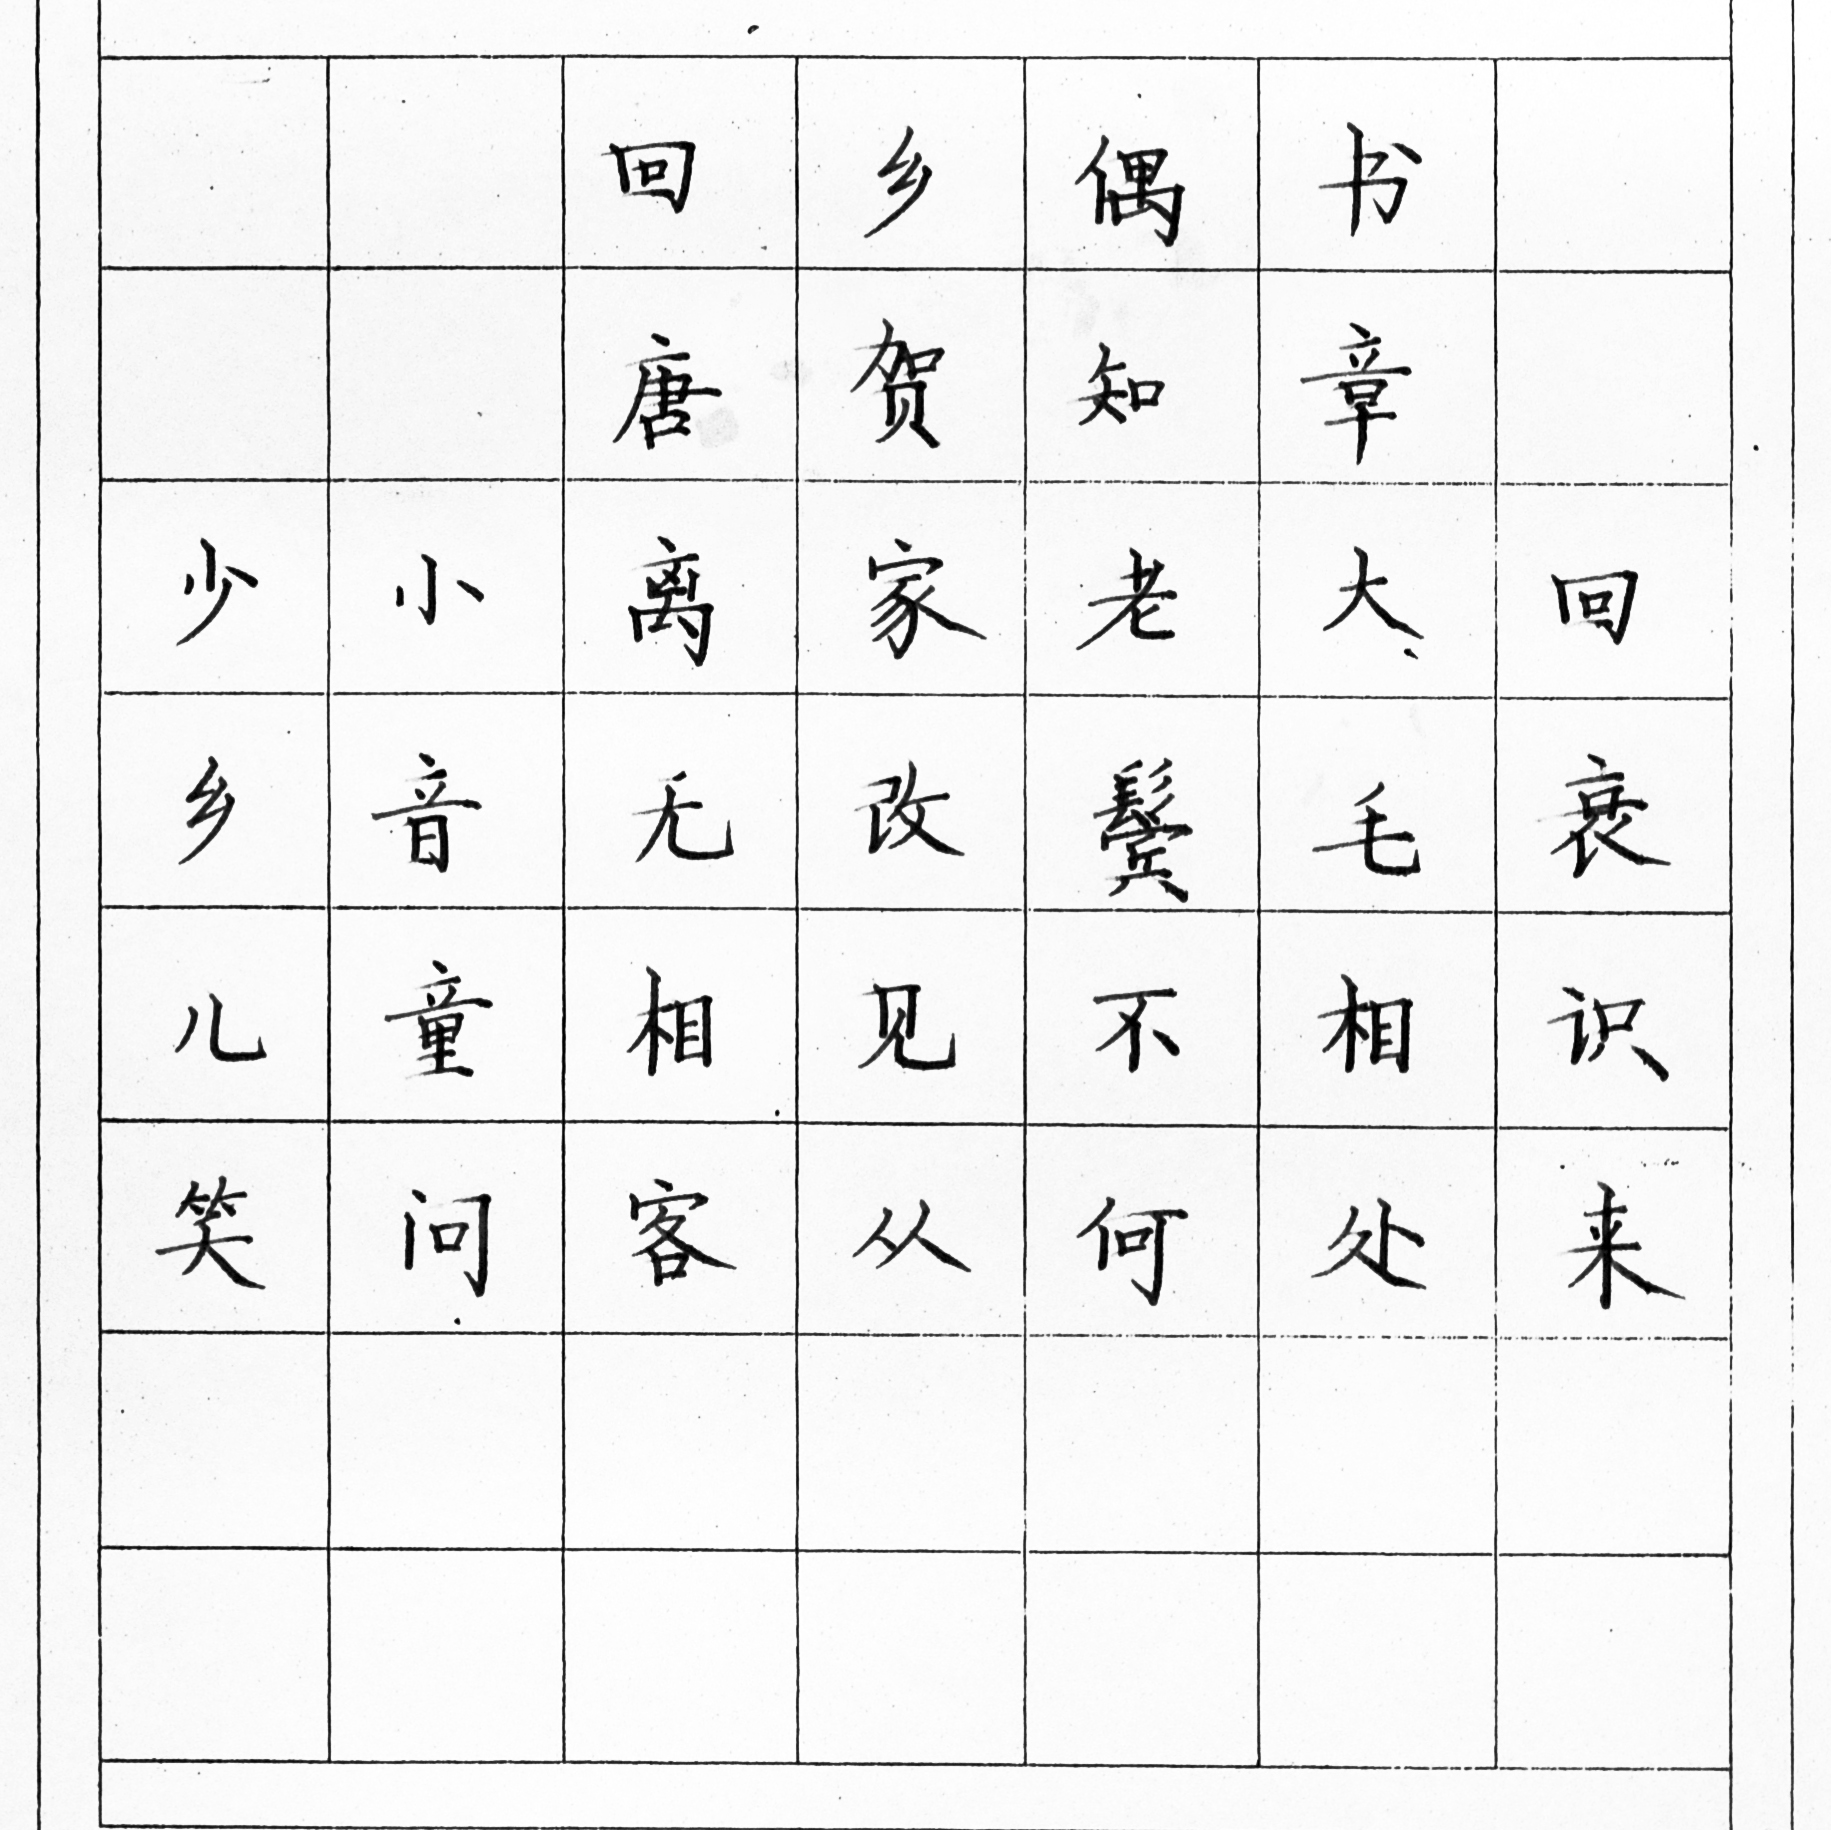 回乡偶书
唐贺知章
少小离家老大回
乡音无改鬓毛衰
儿童相见不相识
笑问客从何处来